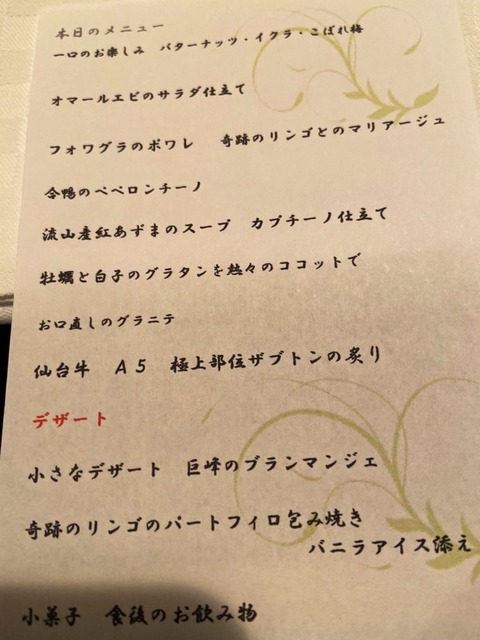 本日のメニュー
一口のお楽しみ　バターナッツ・イクラ・こぼれ梅
オマールエビのサラダ仕立て
フォワグラのポワレ　奇跡のリンゴとのマリアージュ
合鴨のペペロンチーノ
流山産紅あずまのスープ　カプチーノ仕立て
牡蠣と白子のグラタンを熱々のココットで
お口直しのグラニテ
仙台牛　A5　極上部位ザブトンの炙り
デザート
小さなデザート　巨峰のブランマンジェ
奇跡のリンゴのパートフィロ包み焼き
バニラアイス添え
小菓子　食後のお飲み物